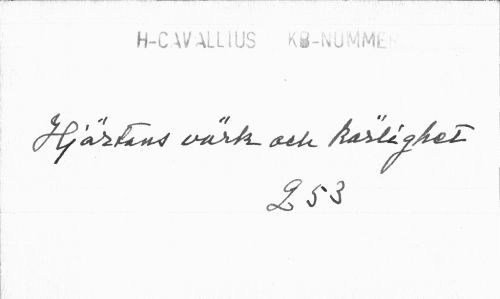 H-CAVALLIUS KB-NUMMER
Hjärtans värk och kärlighet
253